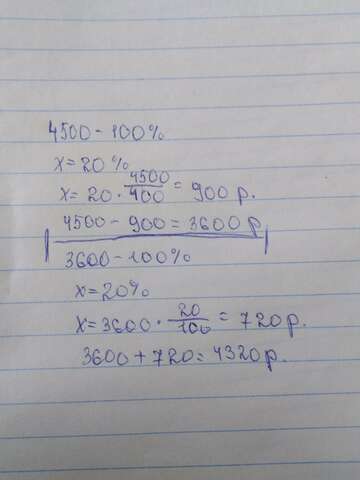 4500 - 100%
x = 20%
x = 20 · 4500/100 = 900 р.
4500 - 900 = 3600 р
3600 - 100%
x = 20%
x = 3600 · 20/100 = 720 р.
3600 + 720 = 4320 р.